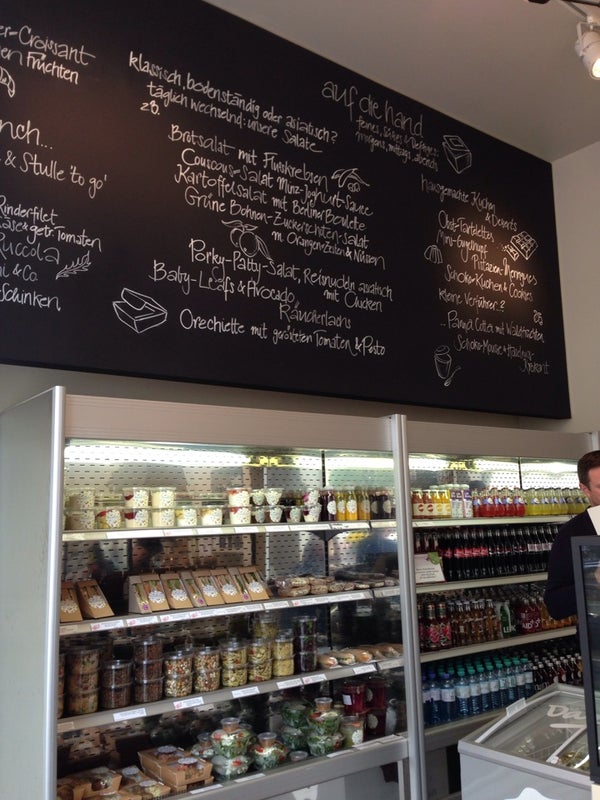 er-Croissant
en Früchten
nch...
& Stulle 'to go'
Rinderfilet
äse & getr. Tomaten
Ruccola
ai & Co.
schinken
klassisch, bodenständig oder asiatisch?
täglich wechselnd: unsere Salate
zB.
Brotsalat mit Flusskrebsen
Couscous-Salat Minz-Joghurt-Sauce
Kartoffelsalat mit Berliner Boulette
Grüne Bohnen-Zuckerschoten-salat
m. Orangen-Zesten & Nüssen
Porky-Patty-Salat, Reisnudeln asiatisch
mit Chicken
Baby-Leafs & Avocado
Räucherlachs
Orechiette mit gerösteten Tomaten & Pesto
auf die hand
feines, süßes & Deftiges
morgens, mittags, abends
hausgemachte Kuchen
& Desserts
Obst-Tartelettes
Mini-Gugelhupf
Pistazien-Meringues
Schoko-Kuchen & Cookies
kleine Verführer?
zB.
... Panna Cotta mit Waldfrüchten
Schoko-Mousse &